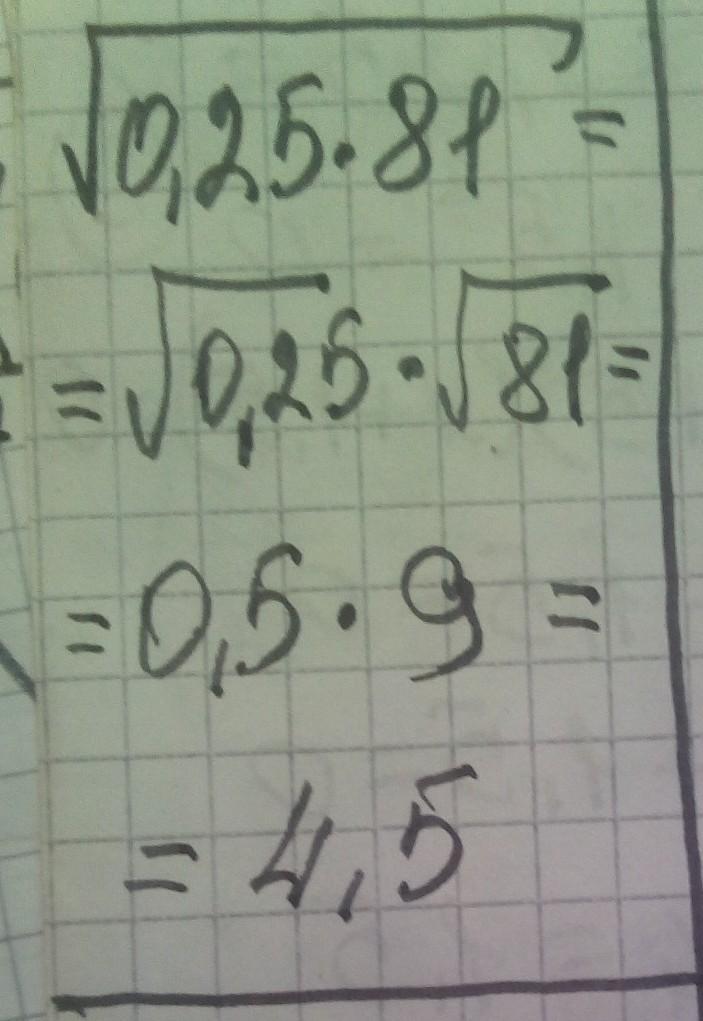 √0,25·81 =
= √0,25 · √81 =
= 0,5 · 9 =
= 4,5